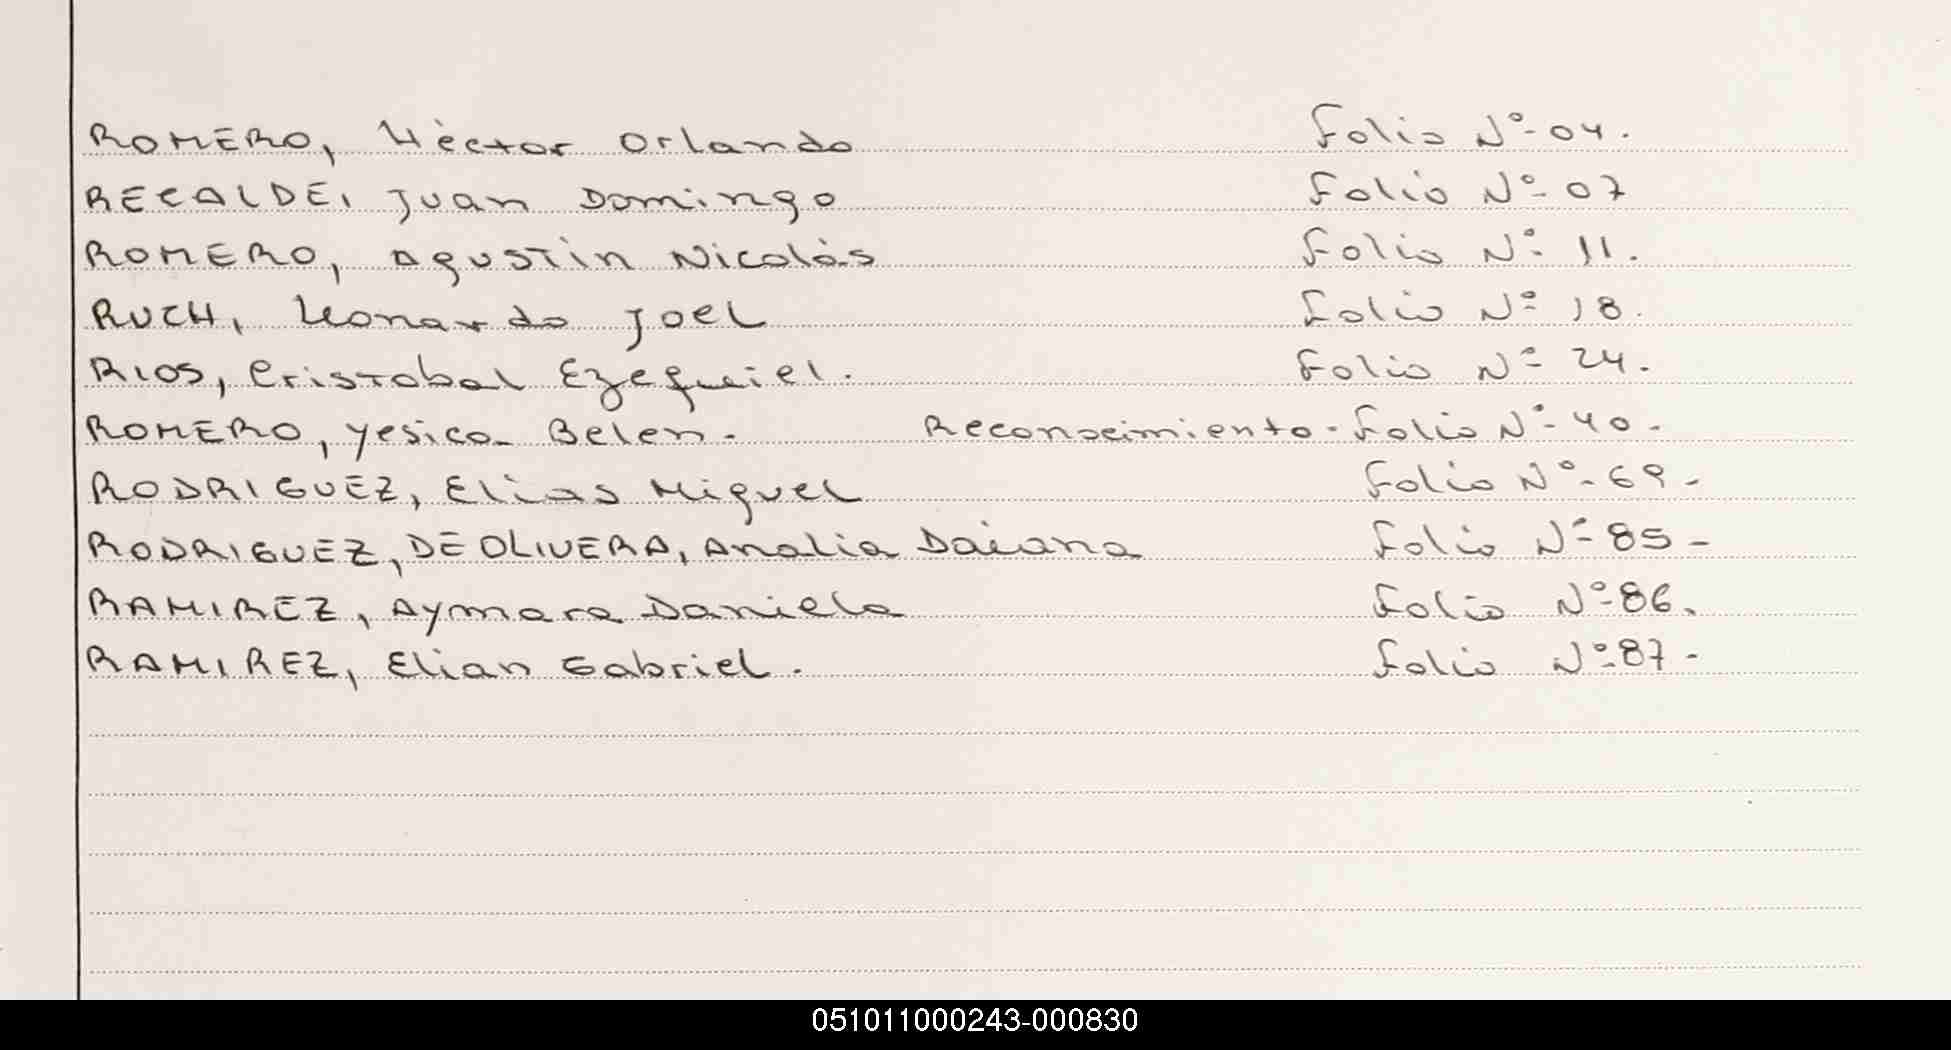 ROMERO, Hèctor Orlando Folio Nº-04.
RECALDE, Juan Domingo Folio Nº-07
ROMERO, Agustin Nicolàs Folio Nº- 11.
RUCH, Leonardo Joel Folio Nº- 18.
RIOS, Cristobal Ezequiel. Folio Nº- 24.
ROMERO, Yesica Belen. Reconocimiento - Folio Nº- 40.
RODRIGUEZ, Elias Miguel Folio Nº-69-
RODRIGUEZ, DE OLIVERA, Analia Daiana Folio Nº-85-
RAMIREZ, Aymara Daniela Folio Nº-86.
RAMIREZ, Elian Gabriel. Folio Nº-87-
051011000243-000830